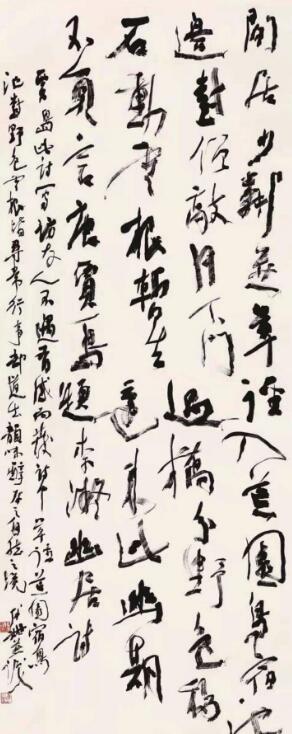 閒居少鄰並草徑入荒園鳥宿池
邊樹僧敲月下門過橋分野色移
石動雲根暫去還來此幽期
不負言唐賈島題李凝幽居詩
賈島此詩寫訪友人不遇有感而發詩中草徑荒園宿鳥
池樹野色雲根皆尋常行事却道出韻味醇厚之自然之境